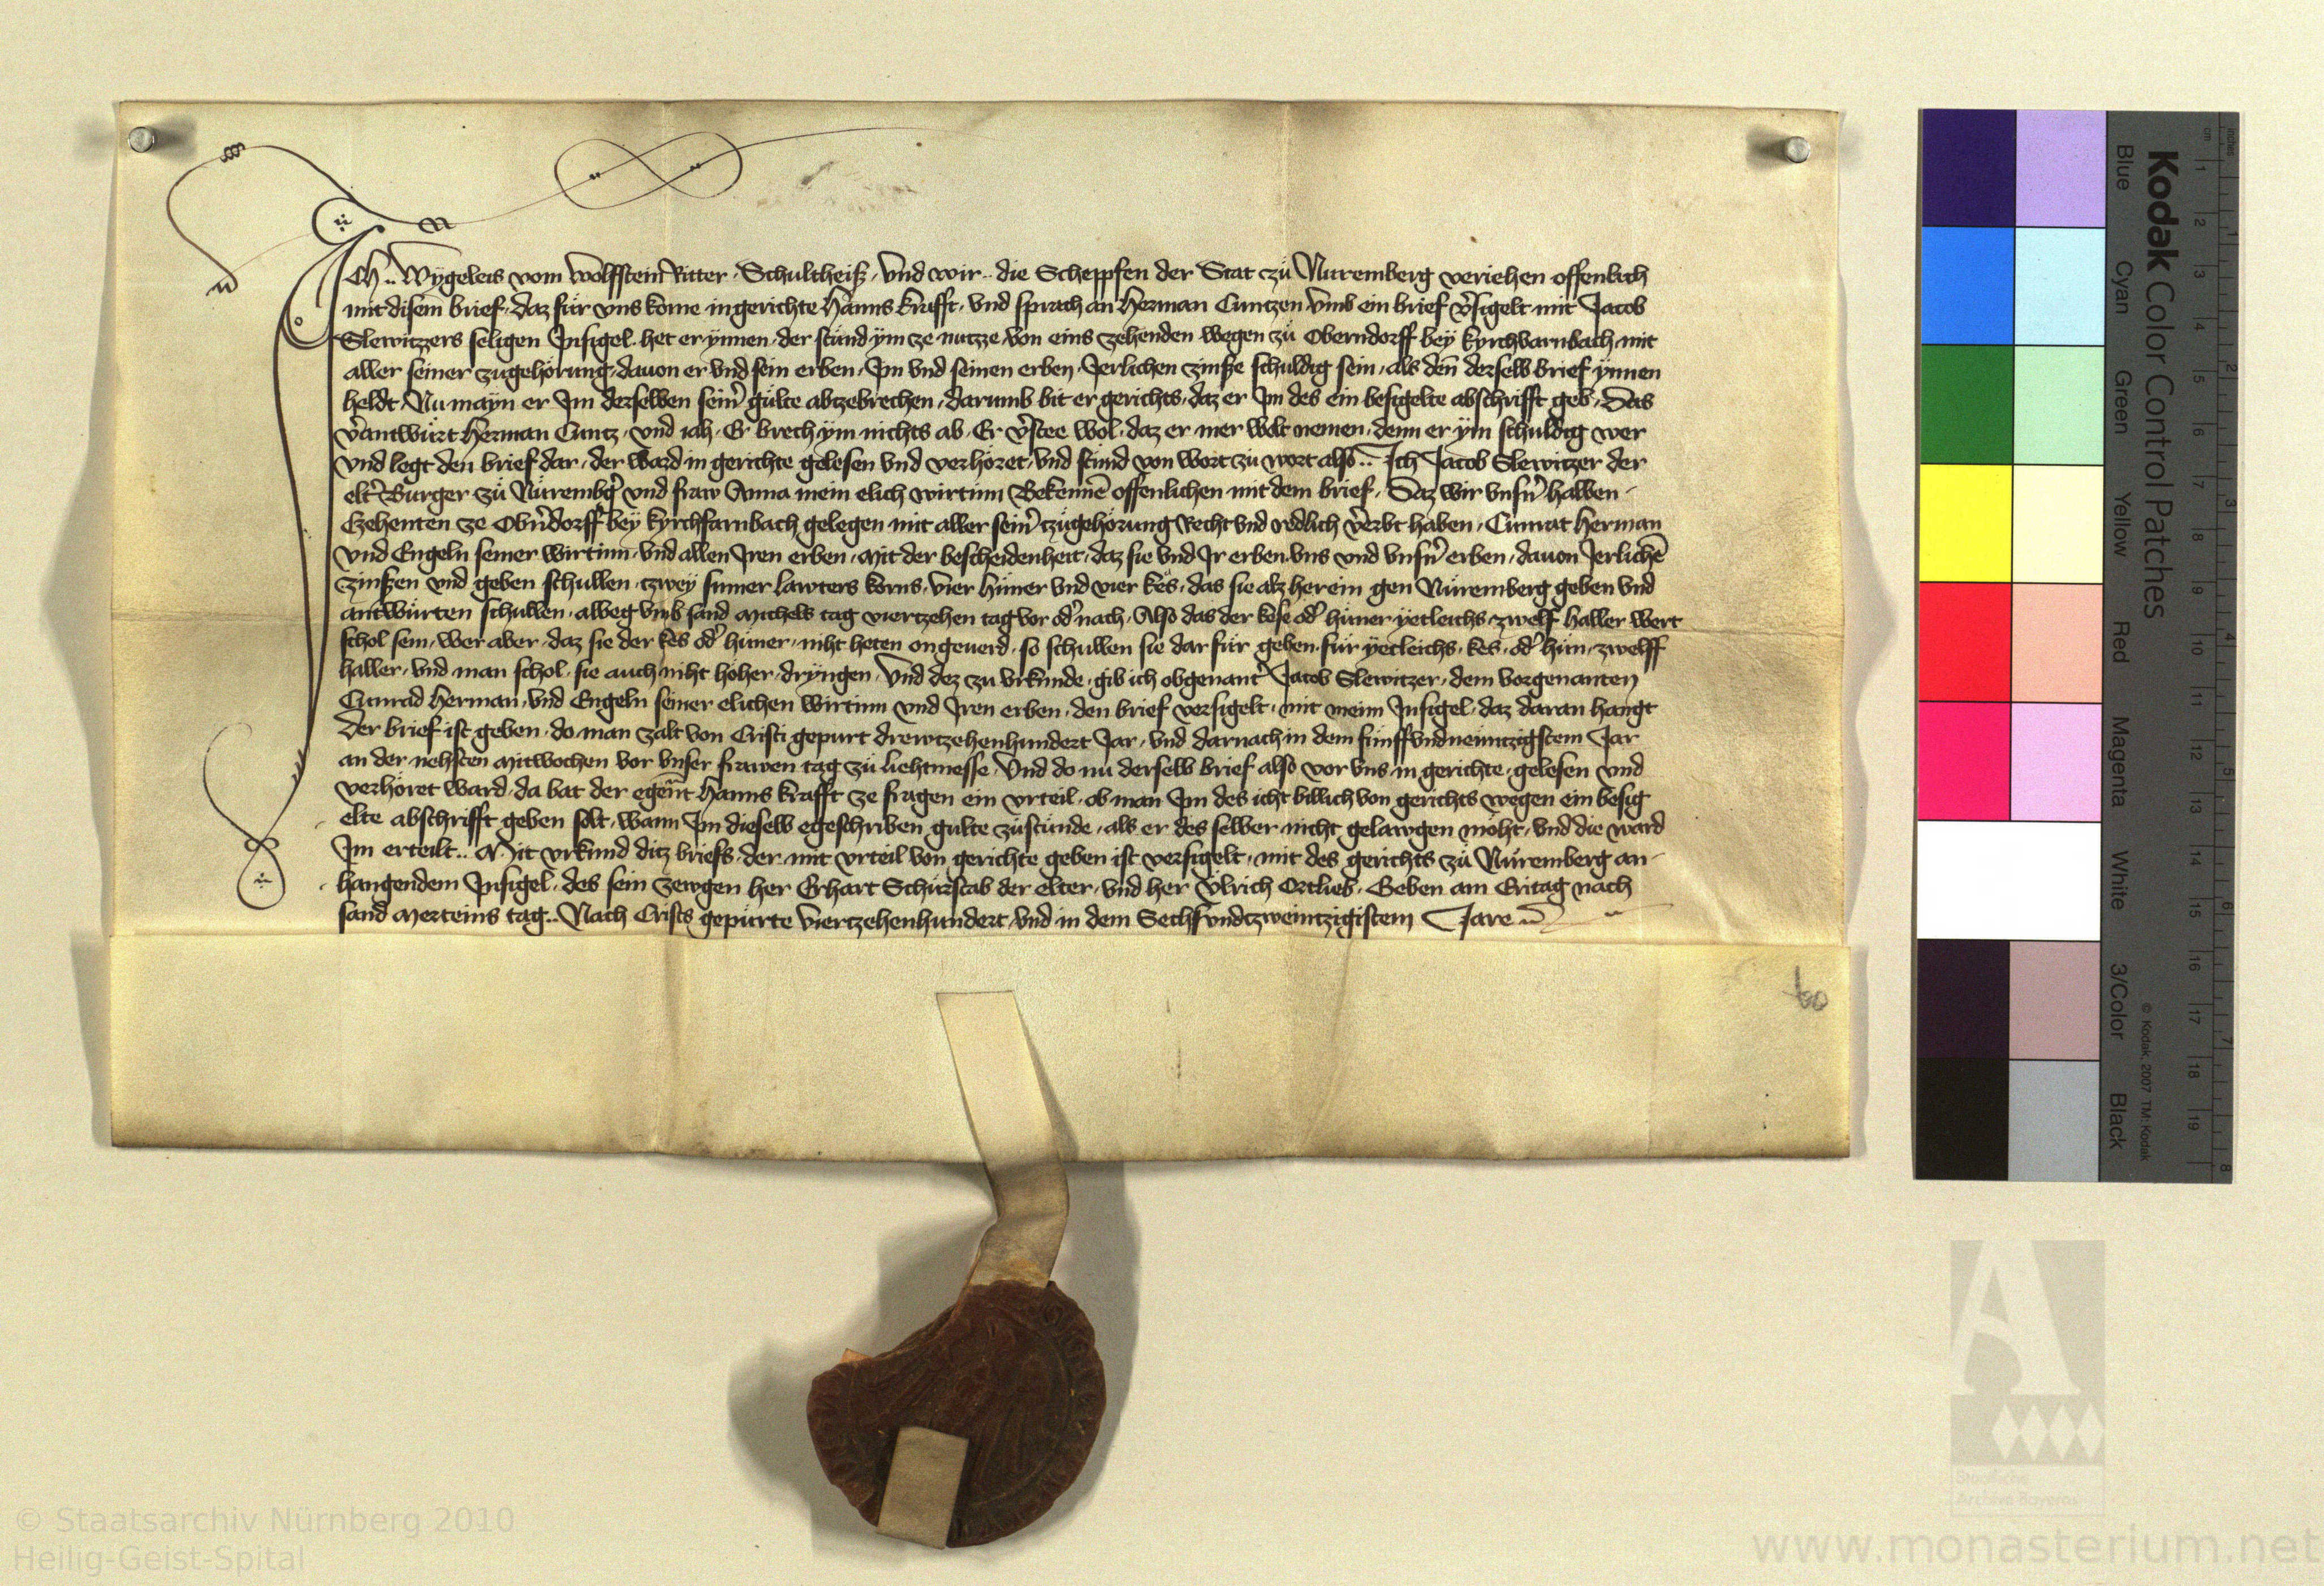 Ich .. Wygeleis vom Wolfstein Ritter . Schultheiß . vnd wir .. die Scheppfen der Stat zü Nuremberg veriehen offenlich
mit disem brief . daz für vns kome in gerichte Hanns Krafft . vnd sprach an Herman Cuntzen vmb ein brief v̾sigelt mit Jacob
Slewitzers seligen Insigel . het er ynnen . der stünd ym ze nutze von eins zehenden wegen zü Oberndorff bey kyrchvarnbach mit
aller seiner zugehörung . dauon er vnd sein erben . Im vnd seinen erben . Jerlichen zinsße schuldig sein . als deñ derselb brief ynnen
heldt . Nu mayn er Im derselben sein̾ gülte abzebrechen . darumb bit er gerichts . daz er Im des ein besigelte abschrifft geb . Das
v̾antwürt Herman Cuntz . vnd iah . Er brech ym nichts ab . Er v̾stee wol . daz er mer wolt nemen . denn er ym schuldig wer
vnd legt den brief dar . der ward in gerichte gelesen vnd verhöret . vnd stünd von wort zü wort also .. Ich Jacob Slewitzer der
elt̾ Burger zü Nürembg̾ vnd fraw Anna mein elich wirtinn Bekennē offenlichen mit dem brief . Daz wir vnsn̾ halben
Czehenten ze Obn̾dorff bey kyrchfarnbach gelegen mit aller sein̾ tzugehörung Recht vnd redlich v̾erbt haben . Cunrat Herman
vnd Engeln seiner wirtinn . vnd allen Iren erben . mit der bescheidenheit . daz sie vnd Ir erben . vns vnd vnsn̾ erben . dauon Jerlichē
zinßen vnd geben schullen . tzwey sumer lawters korns . vier hüner vnd vier kes . das sie alz herein gen Nüremberg geben vnd
antwürten schullen . alweg vmb sand michels tag viertzehen tag vor od̾ nach . Also das der kese od̾ hüner yetleichs zwelf haller wert
schol sein . wer aber . daz sie der kes od̾ hüner . niht heten ongeuerd . so schullen sie dar für geben . für yetleichs . kes . od̾ hün . zwelff
haller . vnd man schol . sie auch niht höher . dryngen . Vnd dez zu vrkünde . gib ich obgenant̾ Jacob Slewitzer . dem vorgenanten
Cunrad Herman . vnd Engeln seiner elichen wirtinn vnd Iren erben . den brief versigelt . mit meinn Insigel . daz daran hangt
Der brief ist geben . do man zalt von Cristi gepurt drewtzehenhundert Jar . vnd darnach in dem fünffvndneuntzigstem Jar
an der nehsten mitwochen vor vnser frawen tag zü liehtmesse . Vnd do nu derselb brief also vor vns in gerichte . gelesen vnd
verhöret ward . da bat der egen̄t Hanns Krafft ze fragen ein vrteil . ob man Im des icht billich von gerichts wegen ein besig
elte abschrifft geben solt . wann Im dieselb egeschriben gülte züstünde . als er des selber nicht gelawgen möht . vnd die ward
Im erteilt .. Mit vrkund ditz briefs . der mit vrteil von gerichte geben ist versigelt . mit des gerichts zü Nüremberg an
hangendem Insigel . des sein zewgen her Erhart Schürstab der elter . vnd her Vlrich Ortlieb . Geben am Eritag nach
sand merteins tag .. Nach Crists gepürte viertzehenhundert . vnd in dem Sechsvndtzweintzigistem Jare
Kodak Color Control Patches
Blue Cyan Green Yellow Red Magenta White 3/Color Black
© Kodak, 2007 TM: Kodak
cm 1 2 3 4 5 6 7 8 9 10 11 12 13 14 15 16 17 18 19
inches 1 2 3 4 5 6 7 8
Staatliche
Archive Bayerns
© Staatsarchiv Nürnberg 2010
Heilig-Geist-Spital
www.monasterium.net